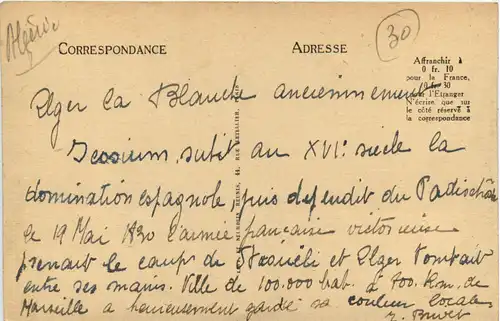 Algérie
30
CORRESPONDANCE
ADRESSE
Affranchir à
0 fr. 10
pour la France,
0 fr. 30
pour l'Etranger
N'écrire que sur
le côté réservé à
la correspondance
Alger la Blanche anciennement
Icosium, subit au XVIe siècle la
domination espagnole puis défendit du Padischah
le 19 Mai 1830 l'armée française victorieuse
prenait le camp de Staouëli et Alger tombait
entre ses mains. Ville de 100.000 hab. à 700 Km. de
Marseille a heureusement gardé sa couleur locale